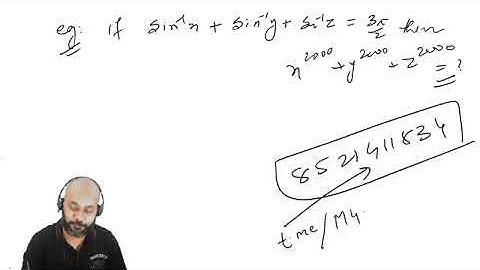 eg: if sin⁻¹x + sin⁻¹y + sin⁻¹z = 3π/2 then
x²⁰⁰⁰ + y²⁰⁰⁰ + z²⁰⁰⁰ = ?
8521411834
t.me/M4